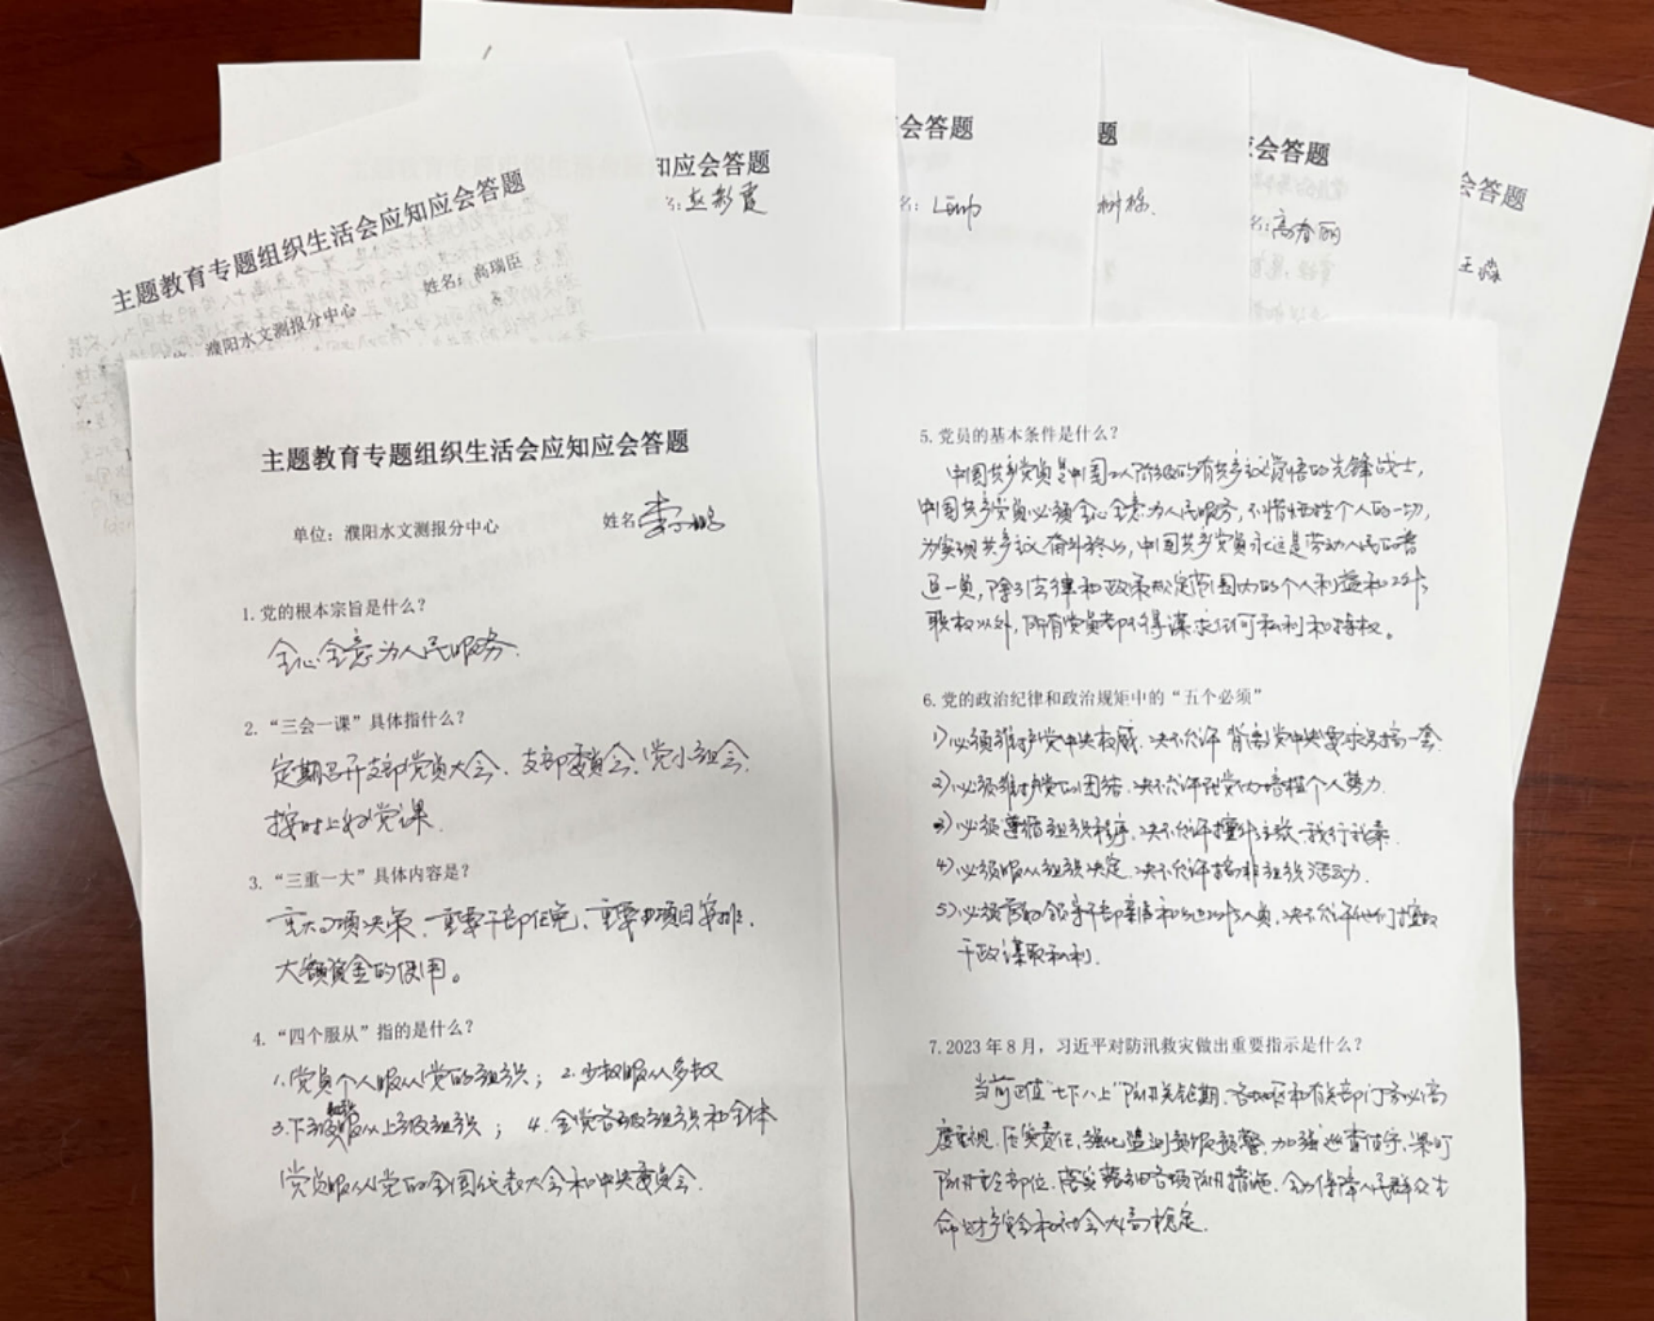 主题教育专题组织生活会应知应会答题
濮阳水文测报分中心 姓名：高瑞臣
知应会答题
赵彩霞
会答题
题
树栋
应会答题
名：高春丽
会答题
王淼
主题教育专题组织生活会应知应会答题
单位：濮阳水文测报分中心 姓名
1. 党的根本宗旨是什么？
全心全意为人民服务.
2. “三会一课”具体指什么？
定期召开支部党员大会、支部委员会、党小组会、
按时上好党课.
3. “三重一大”具体内容是？
重大事项决策、重要干部任免、重要项目安排、
大额资金的使用。
4. “四个服从”指的是什么？
1.党员个人服从党的组织； 2.少数服从多数
3.下级组织服从上级组织； 4.全党各级组织和全体
党员服从党的全国代表大会和中央委员会.
5. 党员的基本条件是什么？
中国共产党员是中国工人阶级的有共产主义觉悟的先锋战士，
中国共产党员必须全心全意为人民服务，不惜牺牲个人的一切，
为实现共产主义奋斗终身，中国共产党员永远是劳动人民的普
通一员，除了法律和政策规定范围内的个人利益和工作
职权以外，所有党员都不得谋求任何私利和特权。
6. 党的政治纪律和政治规矩中的“五个必须”
1)必须维护党中央权威、决不允许背离党中央要求另搞一套.
2)必须维护党的团结、决不允许在党内培植个人势力.
3)必须遵循组织程序、决不允许擅作主张、我行我素.
4)必须服从组织决定、决不允许搞非组织活动.
5)必须管好领导干部亲属和身边工作人员、决不允许他们擅权
干政谋取私利.
7. 2023 年 8 月，习近平对防汛救灾做出重要指示是什么？
当前正值“七下八上”防汛关键期、各地区和有关部门务必高
度重视、压实责任、强化监测预报预警、加强巡查值守、紧盯
防汛重点部位、落实落细各项防汛措施、全力保障人民群众生
命财产安全和社会大局稳定.